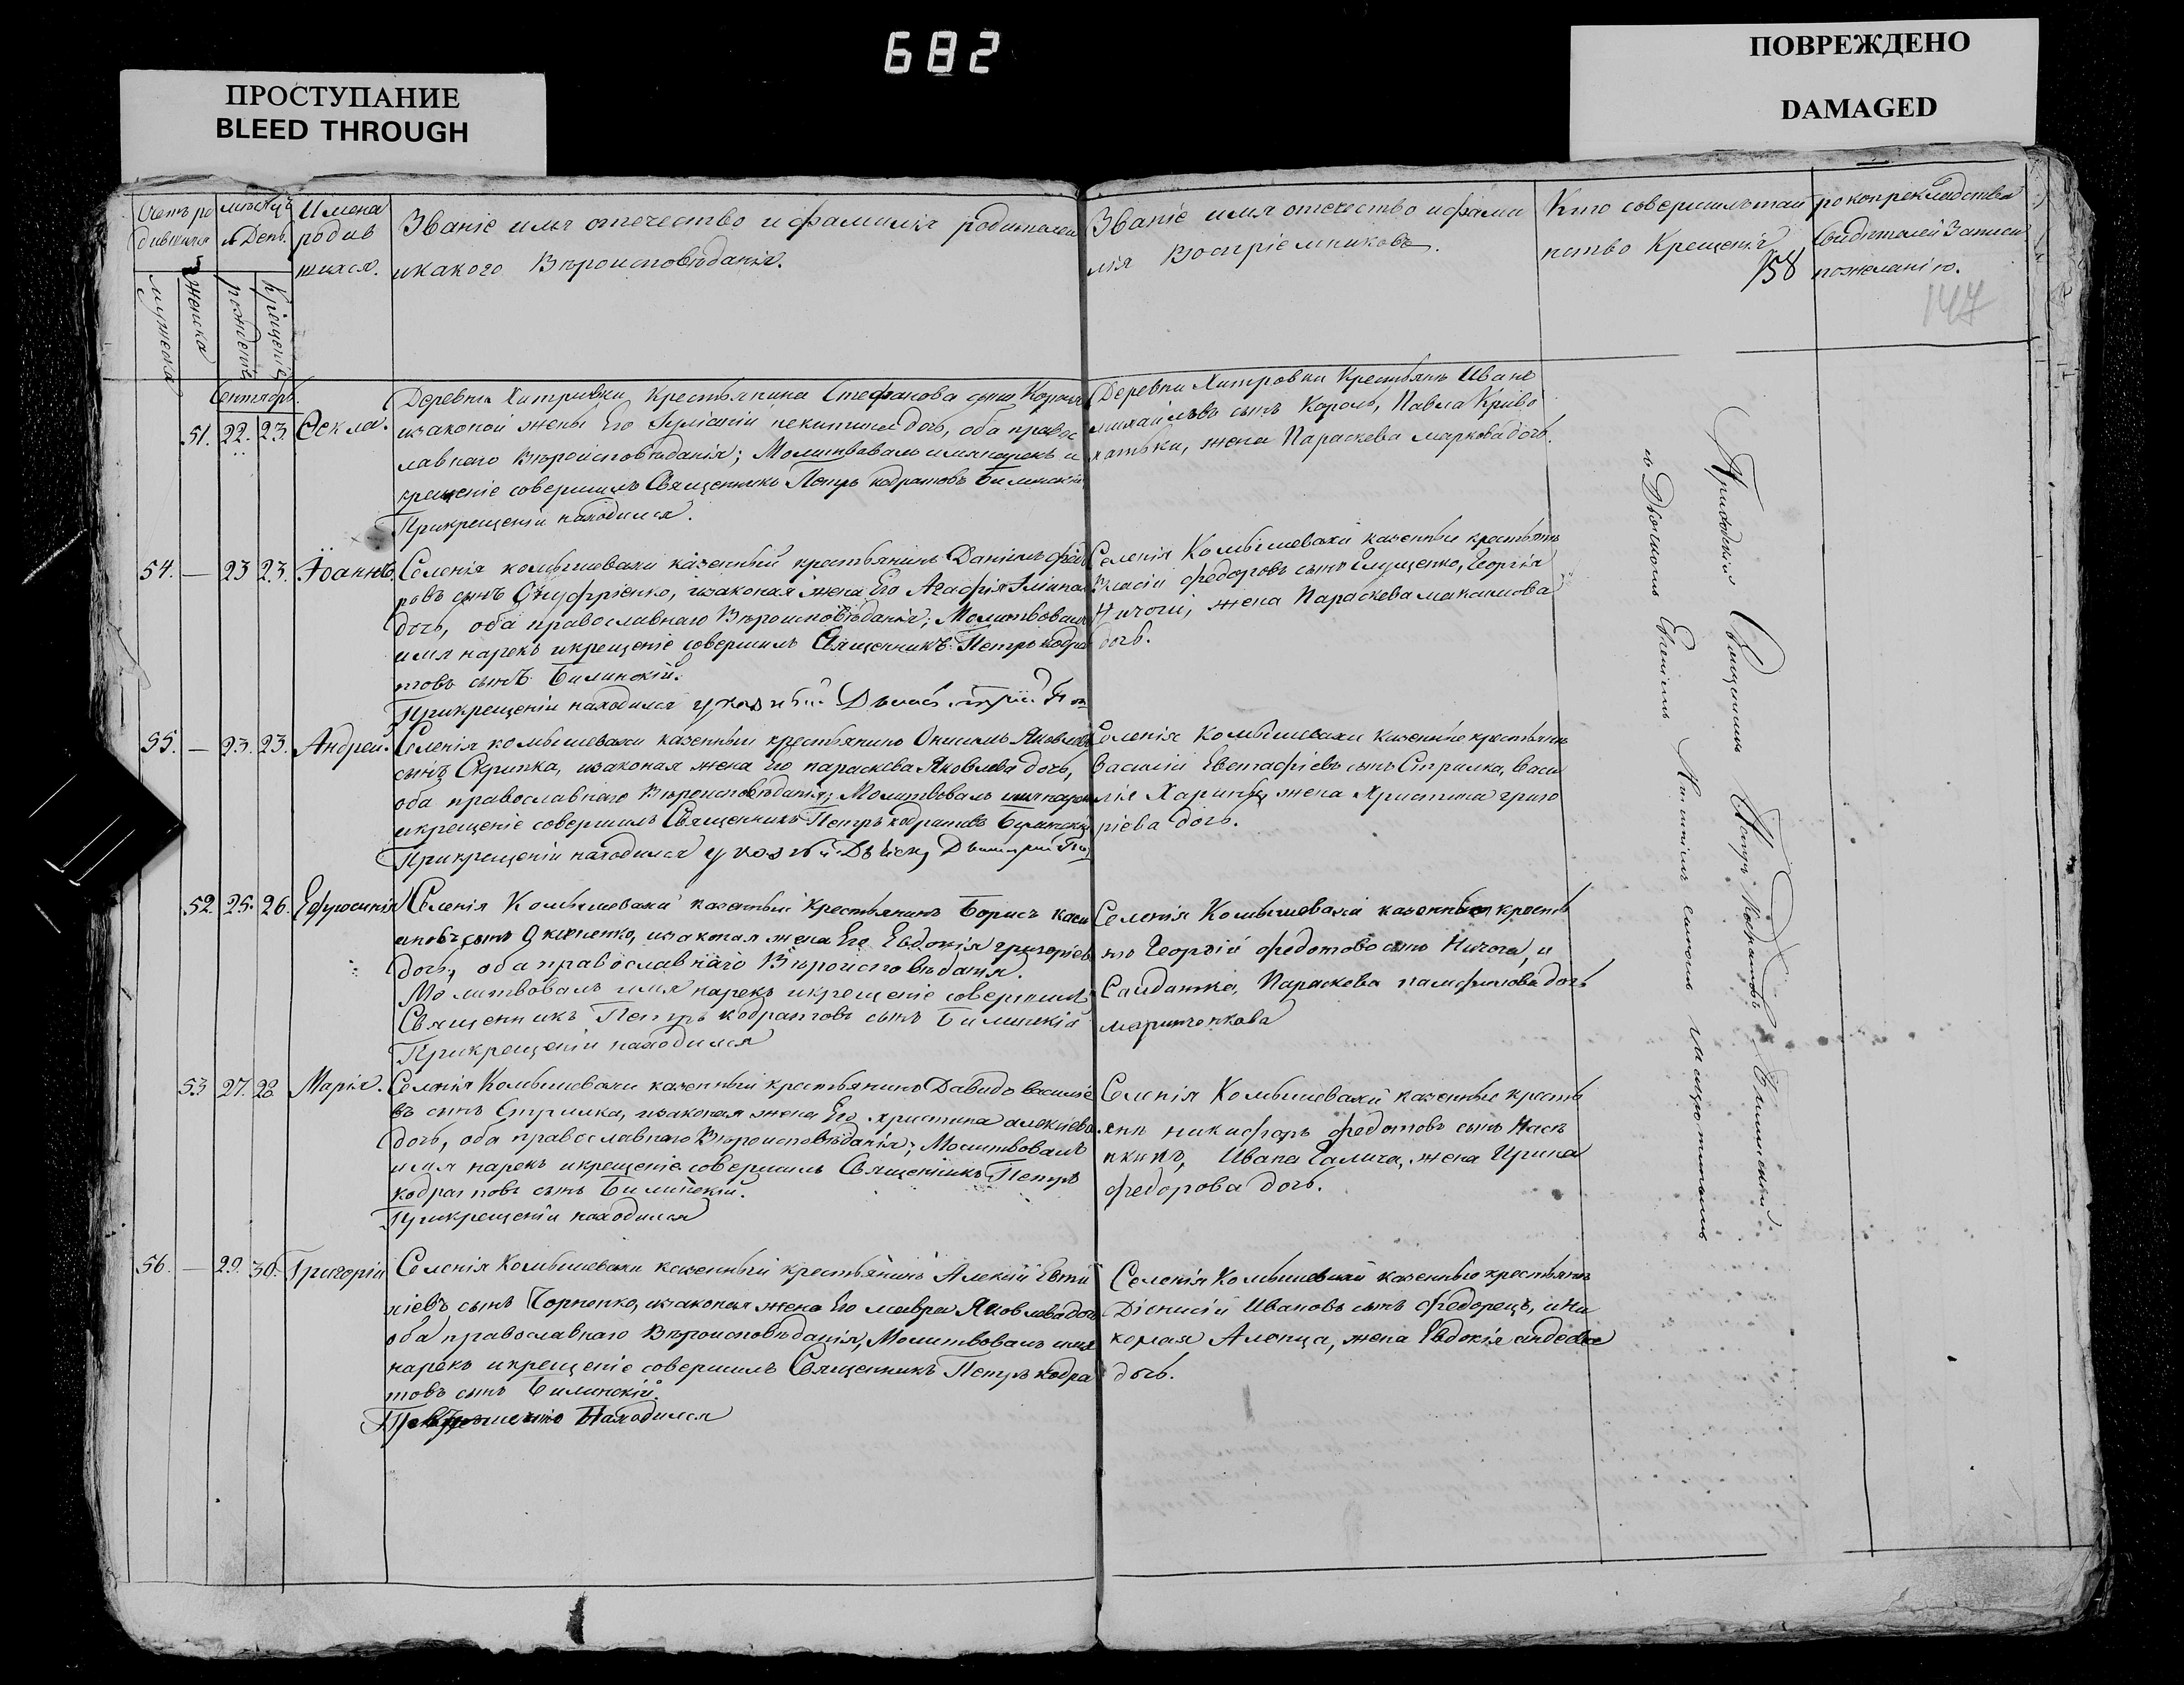 682
ПРОСТУПАНИЕ
BLEED THROUGH
ПОВРЕЖДЕНО
DAMAGED
Счетъ ро
дившихся
мѣсяцъ
и День.
Имена
родив
шихся.
Званіе имя отечество и фамилія родителей
икакого Вѣроисповѣданія.
мужеска
женска
рожденіе
крещеніе
Званіе имя отечество ифами
лія Воспріемниковъ.
Кто совершилъ таи
нство Крещенія
158
147
Свидѣтелей Записи
пожеланію.
Сентябрь.
51. 22. 23. Ѳекла.
Деревни Хитровки Крестьянина Стефанова сына
изаконой жены Его дочь, оба правос
лавнаго Вѣроисповѣданія; Молитвовалъ имянарекъ и
крещеніе совершилъ Священникъ Петръ кодратовъ Билинскій
Прикрещеніи находился.
Деревни Хитровки Крестьянъ Иване
михайловъ сынъ Король, Павла Криво
хатьки, жена Параскева маркова дочь.
54. — 23 23. Іоаннъ.
Селенія комышевахи казенный крестьянинъ Даніилъ федо
ровъ сынъ Онуфріенко, изаконая жена Его Агафія
дочь, оба православнаго Вѣроисповѣданія; Молитвовалъ
имя нарекъ икрещеніе совершилъ Священникъ Петръ кодра
товъ сынъ Билинскій.
Прикрещеніи находился
Селенія Комышевахи казенные крестьянъ
Власіи федоровъ сынъ Глущенко, Георгія
Ничоги, жена Параскева максимова
дочь.
55. — 23. 23. Андреи.
Селенія комышевахи казенный крестьянинъ Онисимъ Яковлевъ
сынъ Скрипка, изаконая жена Его параскева Яковлева дочь,
оба православнаго Вѣроисповѣданія; Молитвовалъ имянарекъ
икрещеніе совершилъ Священникъ Петръ кодратовъ Билинскій
Прикрещеніи находился
Селенія Комышевахи казенные крестьянъ
Василій Евстафіевъ сынъ Стрилка, Васи
лія жена Христина григо
ріева дочь.
52. 25. 26. Ефросинія
Селенія Комышевахи казенный крестьянинъ Борисъ
сынъ изаконая жена Его Евдокія григоріев
дочь, оба православнаго Вѣроисповѣданія.
Молитвовалъ имя нарекъ икрещеніе совершилъ
Священникъ Петръ кодратовъ сынъ Билинскій
Прикрещеніи находился
Селенія Комышевахи казенные кресть
нъ Георгій федотовъ сынъ Ничога, и
Салдатка, Параскева памфилова дочь
53 27. 28. Марія.
Селенія Комышевахи казенный крестьянинъ Давидъ василіе
въ сынъ Стрилка, изаконая жена Его христина алексіева
дочь, оба православнаго Вѣроисповѣданія; Молитвовалъ
имя нарекъ икрещеніе совершилъ Священникъ Петръ
кодратовъ сынъ Билинскій.
Прикрещеніи находился
Селенія Комышевахи казенные кресть
янъ никифоръ федотовъ сынъ
Ивана Галича, жена Ирина
федорова дочь.
56. — 29. 30. Григоріи
Селенія Комышевахи казенный крестьянинъ Алексій Евти
хіевъ сынъ Чорненко, изаконая жена Его мавра Яковлева дочь
оба православнаго Вѣроисповѣданія, Молитвовалъ имя
нарекъ икрещеніе совершилъ Священникъ Петръ кодра
товъ сынъ Билинскій.
Находился
Селенія Комышевахи казенные крестьянъ
Діонисій Ивановъ сынъ федорецъ, и Ни
колая жена Евдокія
дочь.
Священникъ Петръ Кодратовъ Билинскій
съ Дьячкомъ Евсевіемъ